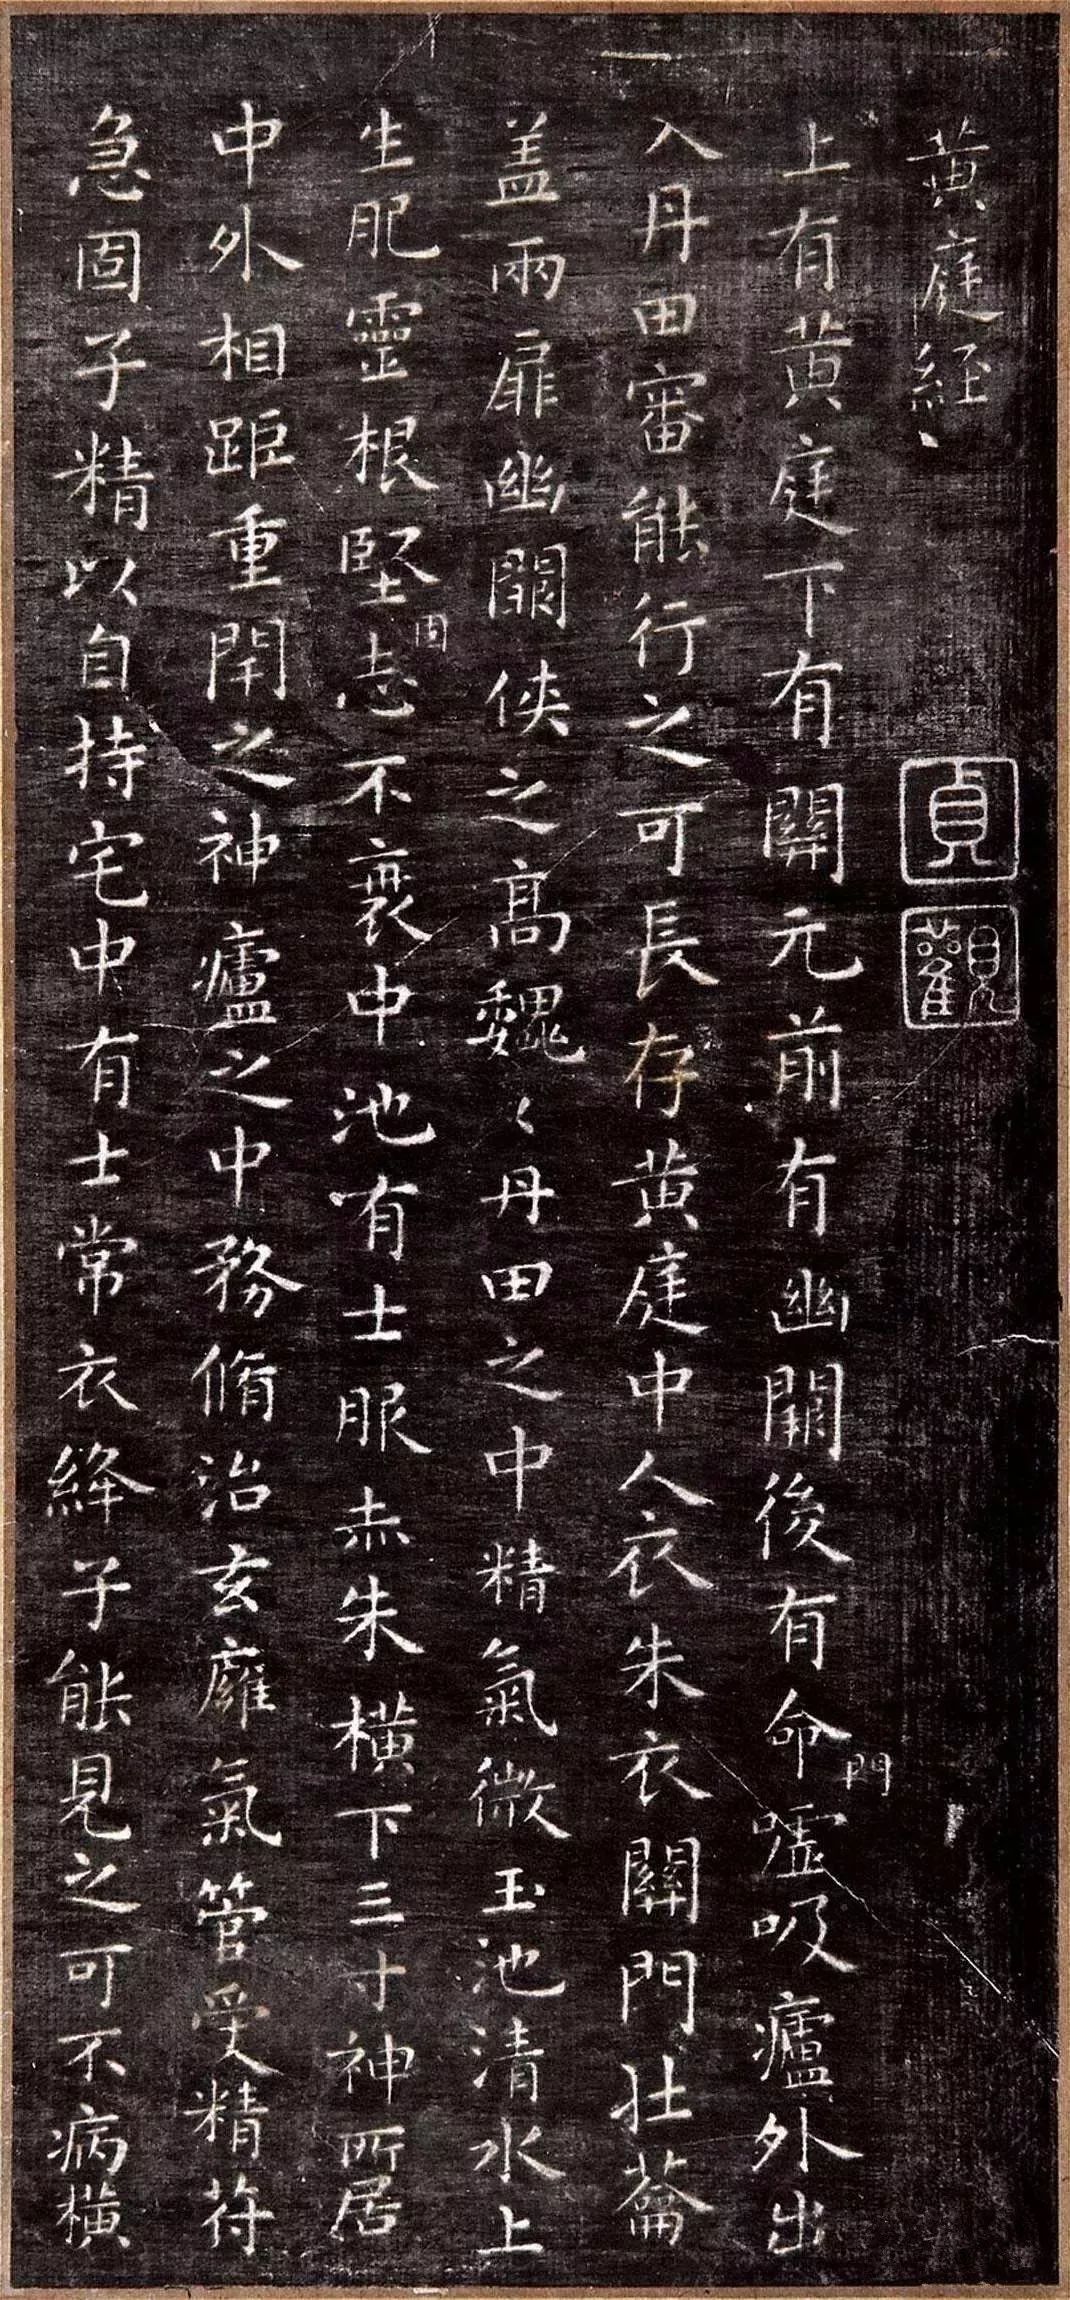 黄庭經
貞
觀
上有黄庭下有關元前有幽闕後有命門噓吸廬外出
入丹田審能行之可長存黄庭中人衣朱衣關門壯蘥
盖兩扉幽闕俠之高巍〻丹田之中精氣微玉池清水上
生肥靈根堅固志不衰中池有士服赤朱橫下三寸神所居
中外相距重閉之神廬之中務脩治玄廱氣管受精符
急固子精以自持宅中有士常衣絳子能見之可不病橫